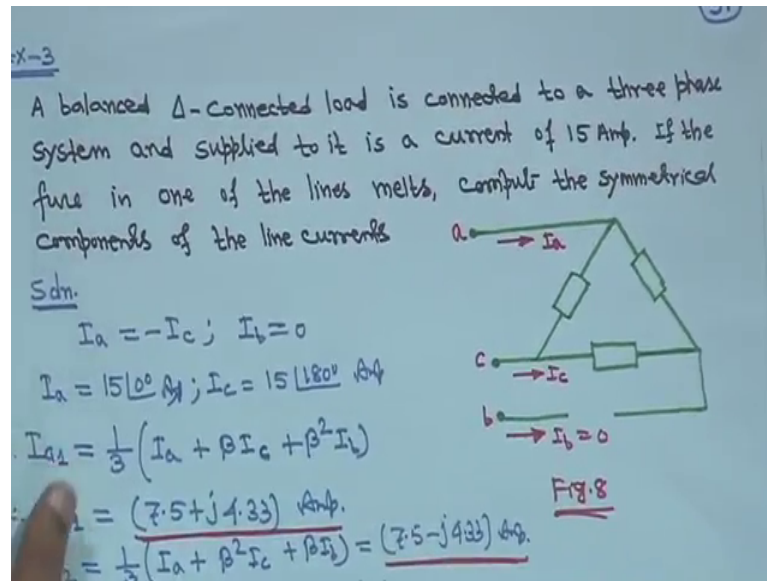 Ex-3
A balanced Δ-connected load is connected to a three phase
system and supplied to it is a current of 15 Amp. If the
fuse in one of the lines melts, compute the symmetrical
components of the line currents
Soln.
Ia = -Ic; Ib = 0
Ia = 15∠0° Amp; Ic = 15∠180° Amp
Ia1 = 1/3 (Ia + βIc + β²Ib)
1 = (7.5+j4.33) Amp.
2 = 1/3 (Ia + β²Ic + βIb) = (7.5-j4.33) Amp.
a
Ia
c
Ic
b
Ib = 0
Fig.8